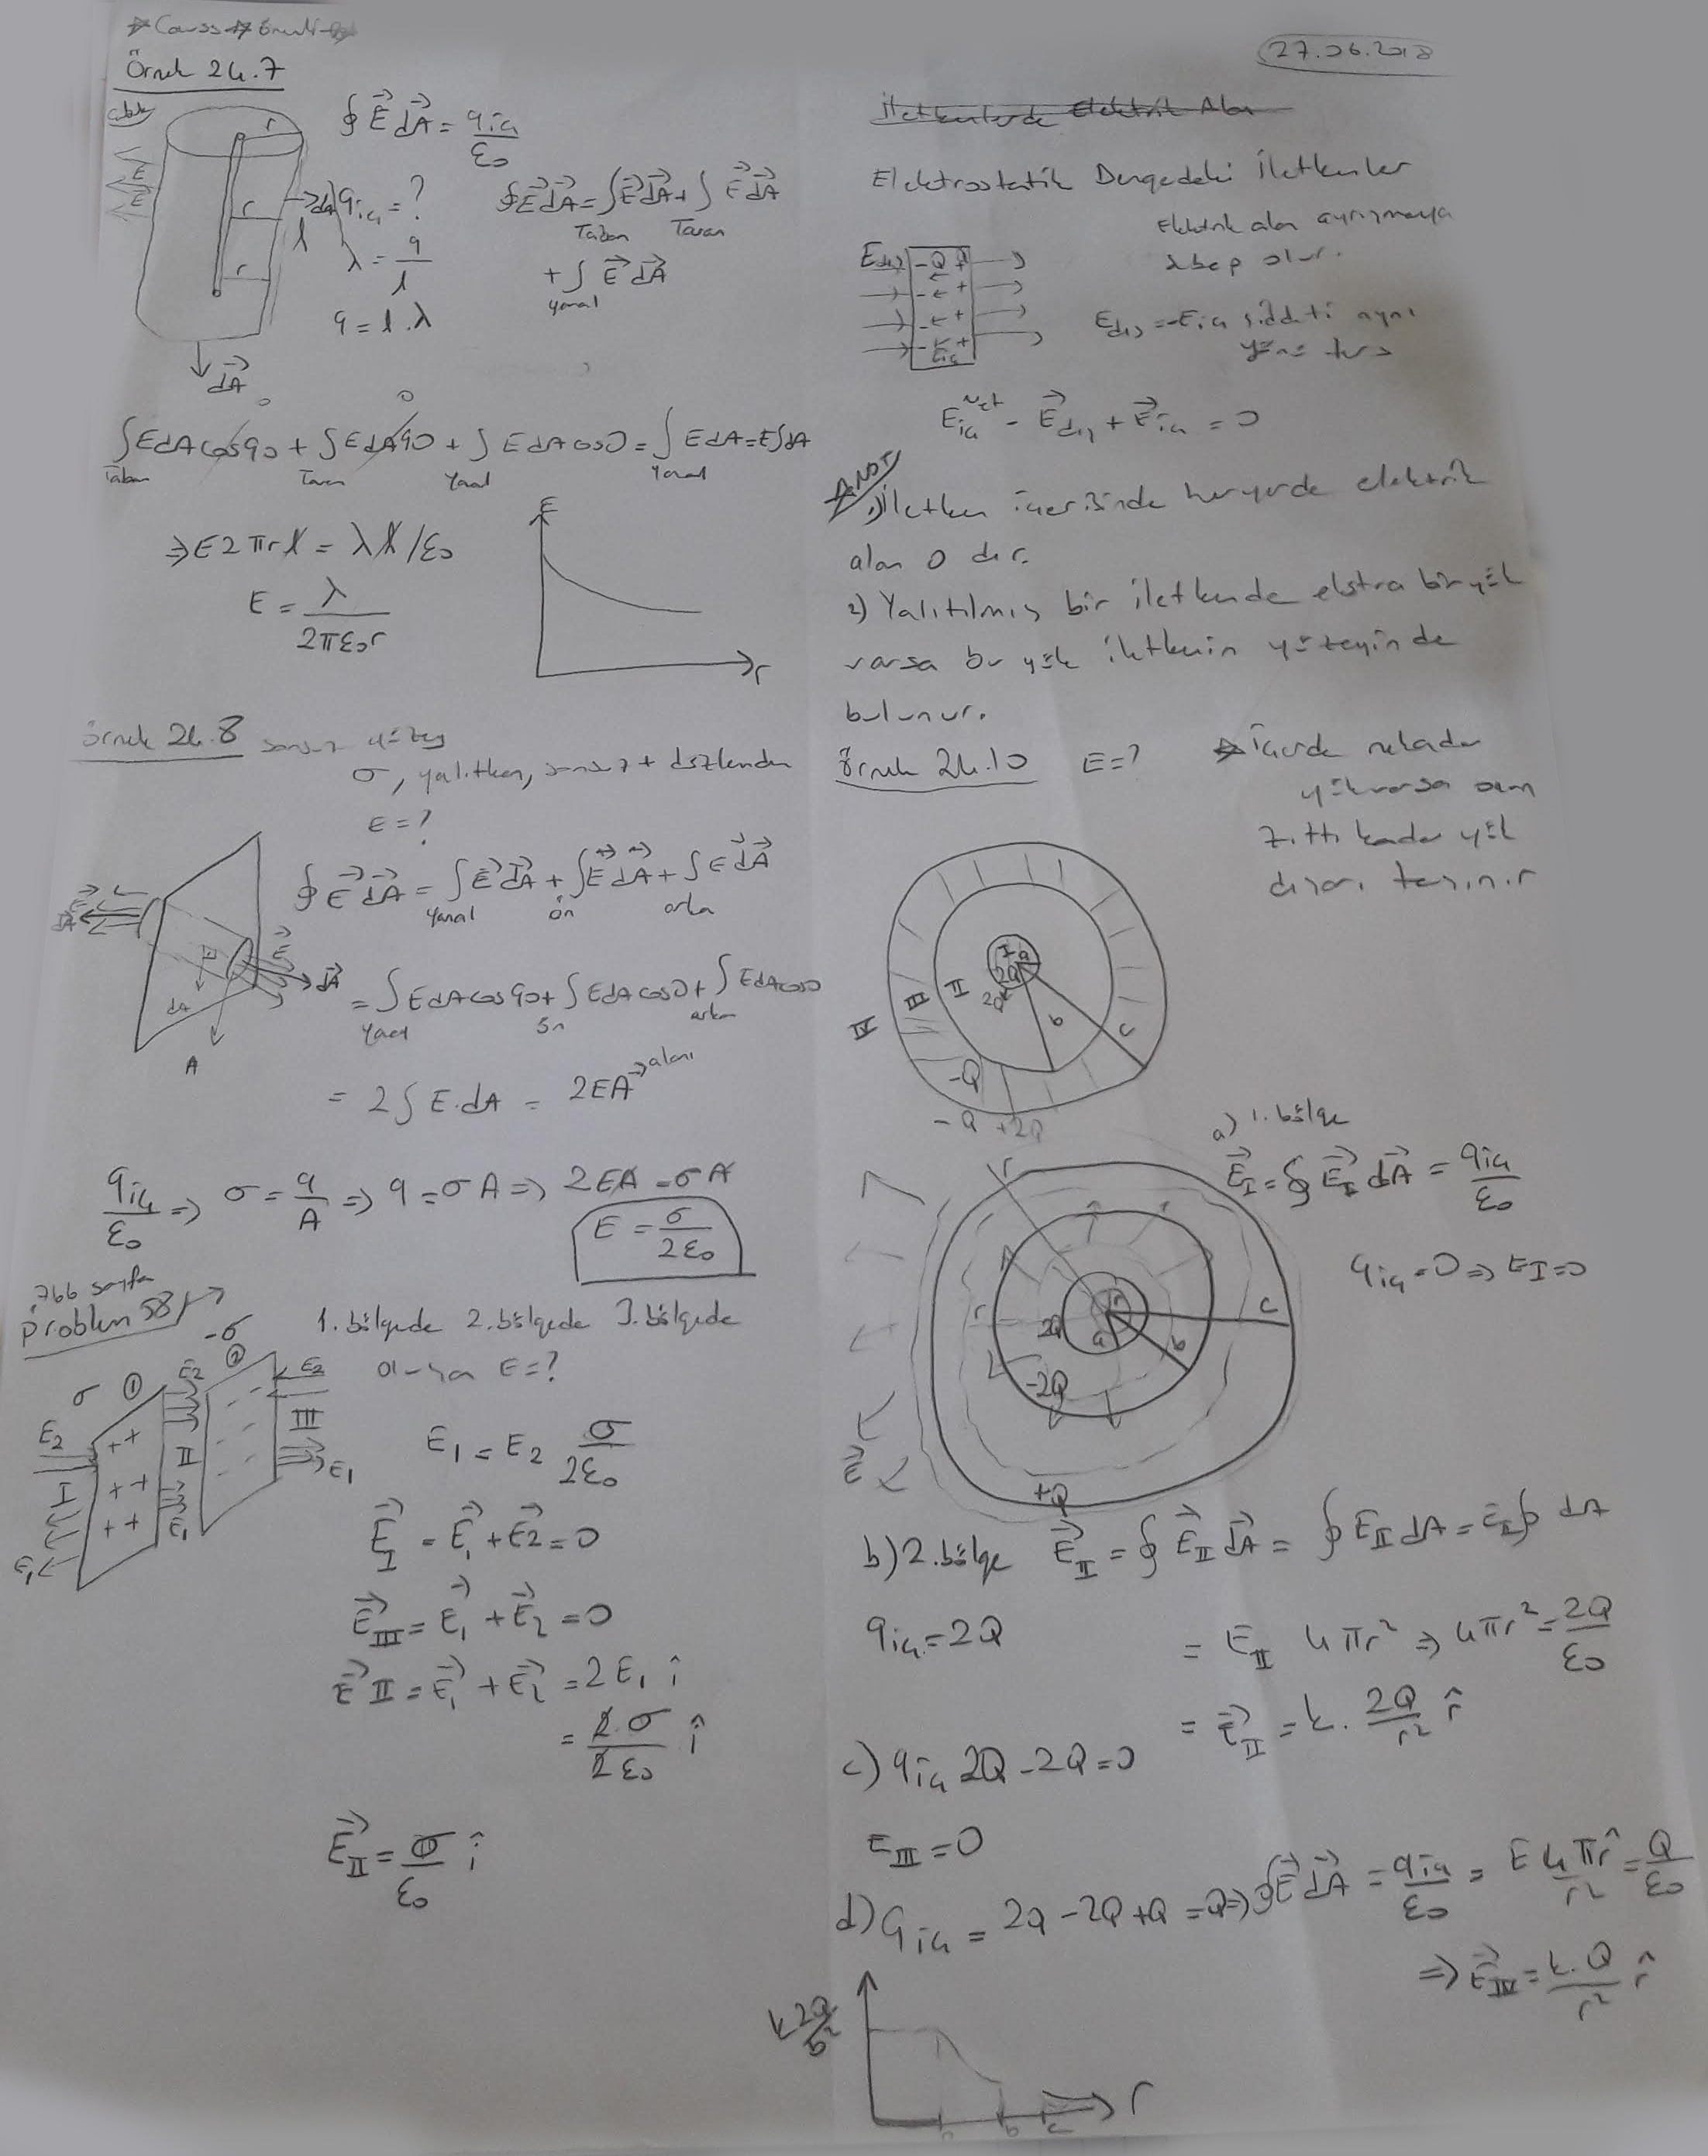 Örnek 24.7
27.06.2018
∮ E⃗ dA⃗ = q_iç / ε₀
q_iç = ?
λ = q / l
q = l.λ
∮E⃗ dA⃗ = ∫E⃗ dA⃗ + ∫ E⃗ dA⃗
Taban Tavan
+ ∫ E⃗ dA⃗
yanal
dA⃗
∫EdA cos90 + ∫EdA90 + ∫ EdA cos0 = ∫ EdA = E∫dA
Taban Tavan Yanal Yanal
⇒ E2πrl = λl/ε₀
E = λ / 2πε₀r
E
r
Örnek 24.8 sonsuz yüzey
σ, yalıtkan, sonsuz + düzlemden
E = ?
∮ E⃗ dA⃗ = ∫E⃗ dA⃗ + ∫E⃗ dA⃗ + ∫E dA⃗
Yanal ön arka
= ∫EdA cos90 + ∫EdA cos0 + ∫EdA cos0
Yanal ön arka
A
= 2∫ E.dA = 2EA → alanı
q_iç / ε₀ ⇒ σ = q / A ⇒ q = σA ⇒ 2EA = σA
E = σ / 2ε₀
766 sayfa
problem 58
1.bölgede 2.bölgede 3.bölgede
E = ?
σ ① -σ ②
E₂ I E₁ II E₂ E₁ III E₂ E₁
E₁ = E₂ σ / 2ε₀
E⃗_I = E⃗₁ + E⃗2 = 0
E⃗_III = E⃗₁ + E⃗₂ = 0
E⃗ II = E⃗₁ + E⃗₂ = 2E₁ î
= 2.σ / 2ε₀ î
E⃗_II = σ / ε₀ î
İletkenlerde Elektrik Alan
Elektrostatik Dengedeki İletkenler
Elektrik alan ayrışmaya
sebep olur.
E_dış = -E_iç şiddeti aynı
yönü ters
E_iç^net = E⃗_dış + E⃗_iç = 0
NOT
1) İletken içerisinde heryerde elektrik
alan 0 dır.
2) Yalıtılmış bir iletkende ekstra bir yük
varsa bu yük iletkenin yüzeyinde
bulunur.
Örnek 24.10 E = ?
İçerde nekadar
yük varsa onun
zıttı kadar yük
dışarı taşınır
I a 2Q
II b
III c
IV
-Q
-Q +2Q
a) 1.bölge
E⃗_I = ∮ E⃗_I dA⃗ = q_iç / ε₀
q_iç = 0 ⇒ E_I = 0
r
r 2Q a b c
-2Q
E⃗
+Q
b) 2.bölge E⃗_II = ∮ E⃗_II dA⃗ = ∮ E_II dA = E_II ∮ dA
q_iç = 2Q
= E_II 4πr² ⇒ 4πr² = 2Q / ε₀
= E⃗_II = k. 2Q / r² r̂
c) q_iç 2Q - 2Q = 0
E_III = 0
d) q_iç = 2Q - 2Q + Q = Q ⇒ ∮E⃗ dA⃗ = q_iç / ε₀ = E 4πr̂ / r² = Q / ε₀
⇒ E⃗_IV = k.Q / r² r̂
k 2Q / b²
a b c r